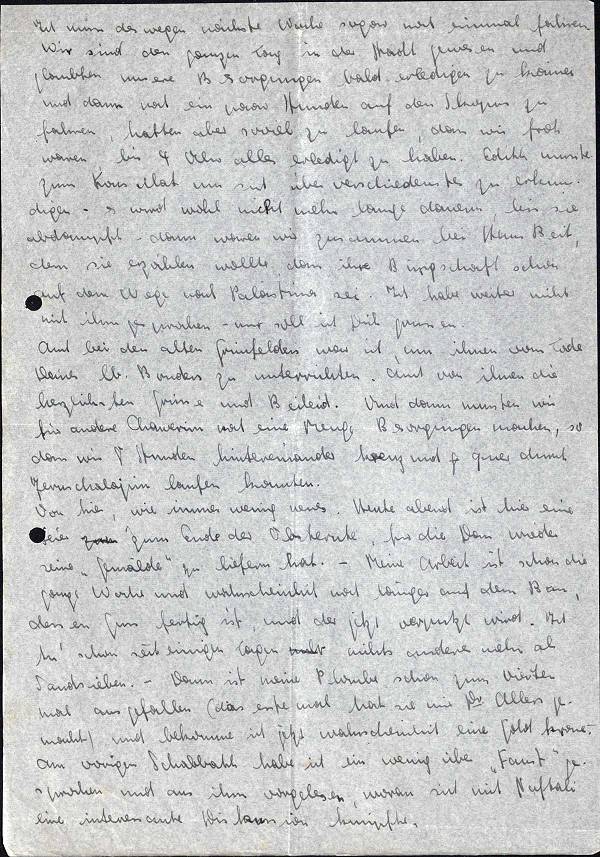 Ich muss deswegen nächste Woche sogar noch einmal fahren
Wir sind den ganzen Tag in der Stadt gewesen und
glaubten unsere Besorgungen bald erledigen zu können
und dann noch ein paar Stunden auf den Skopus zu
fahren, hatten aber soviel zu laufen, dass wir froh
waren, bis 4 Uhr alles erledigt zu haben. Edith musste
zum Konsulat um sich über verschiedenstes zu erkun-
digen - es wird wohl nicht mehr lange dauern, bis sie
abdampft - dann waren wir zusammen bei Herrn Beit,
dem sie erzählen wollte, dass ihre Bürgschaft schon
auf dem Wege nach Palästina sei. Ich habe weiter nicht
mit ihm gesprochen - nur soll ich Dich grüssen.
Auch bei den alten Grünfelders war ich, um ihnen vom Tode
Deines lb. Bruders zu unterrichten. Auch von ihnen die
herzlichsten Grüsse und Beileid. Und dann mussten wir
für andere Chawerim noch eine Menge Besorgungen machen, so
dass wir 7 Stunden hintereinander kreuz und quer durch
Jeruschalajim laufen konnten.
Von hier, wie immer wenig neues. Heute abend ist hier eine
Feier zum Ende der Obsternte, für die Dan wieder
seine „Gemälde" zu liefern hat. - Meine Arbeit ist schon die
ganze Woche und wahrscheinlich noch länger auf dem Bau,
dessen Guss fertig ist, und der jetzt verputzt wird. Ich
tu' schon seit einigen Tagen nichts anderes mehr als
Sandsieben. - Dann ist meine Plombe schon zum vierten
mal ausgefallen (das erste mal hat sie mir Dr Alless ge-
macht) und bekomme ich jetzt wahrscheinlich eine Goldkrone.
Am vorigen Schabbath habe ich ein wenig über „Faust" ge-
sprochen und aus ihm vorgelesen, woran sich mit Naftali
eine interessante Diskussion knüpfte.